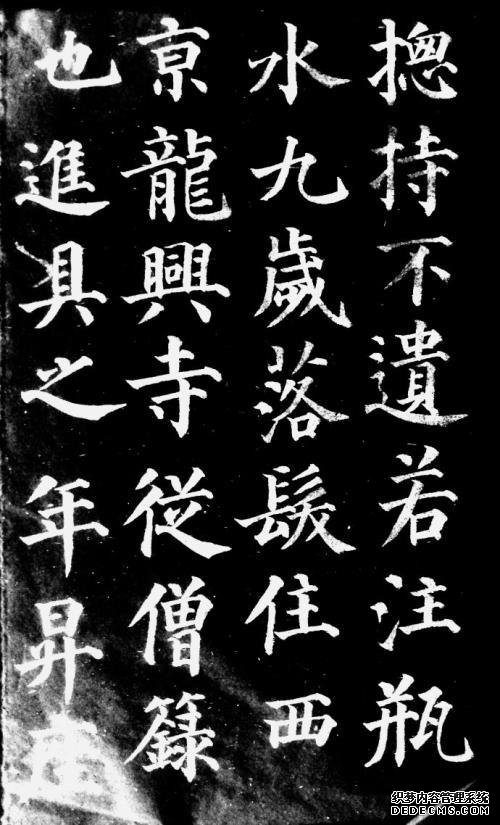 摠持不遺若注瓶
水九歲落髮住西
亰龍興寺從僧籙
也進具之年昇座
织梦内容管理系统
DEDECMS.COM